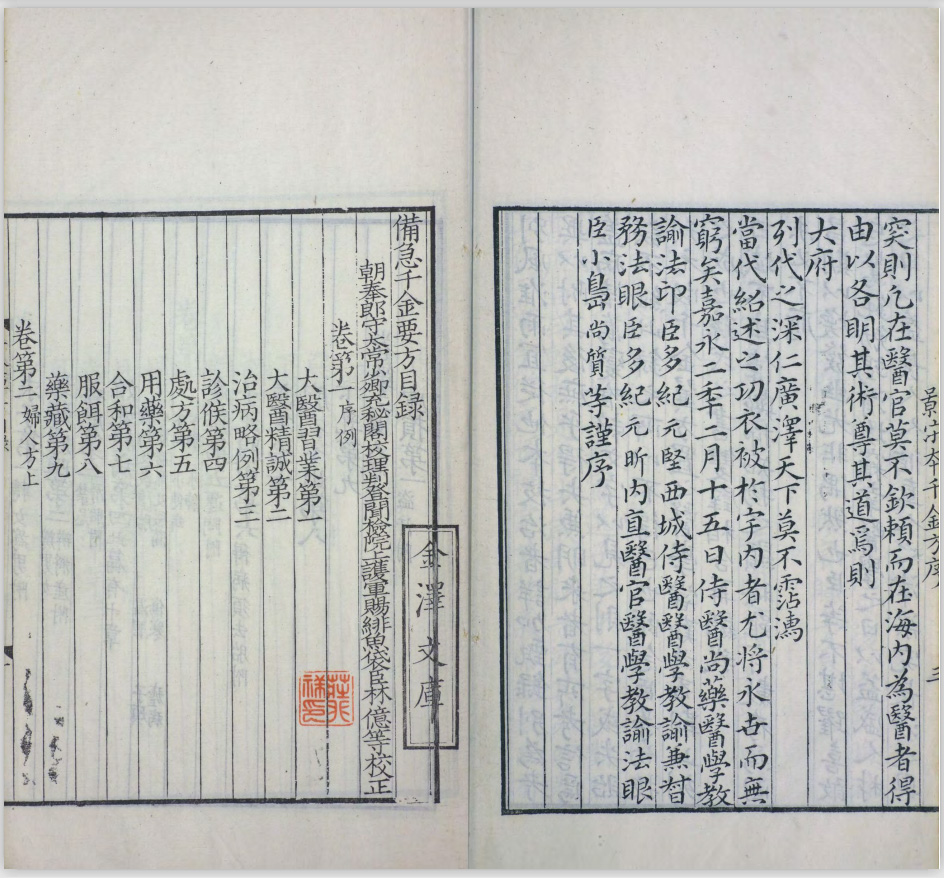 景宋本千金方序
突則凡在醫官莫不欽賴而在海內為醫者得
由以各明其術尊其道焉則
大府
列代之深仁廣澤天下莫不霑濡
當代紹述之功衣被於宇內者尤將永古而無
窮矣嘉永二年二月十五日侍醫尚藥醫學教
諭法印臣多紀元堅西城侍醫醫學教諭兼督
務法眼臣多紀元昕內直醫官醫學教諭法眼
臣小島尚質等謹序
金澤文庫
備急千金要方目録
朝奉郎守太常少卿充秘閣校理判登聞檢院上護軍賜緋魚袋臣林億等校正
卷第一 序例
大醫習業第一
大醫精誠第二
治病略例第三
診候第四
處方第五
用藥第六
合和第七
服餌第八
藥藏第九
卷第二 婦人方上